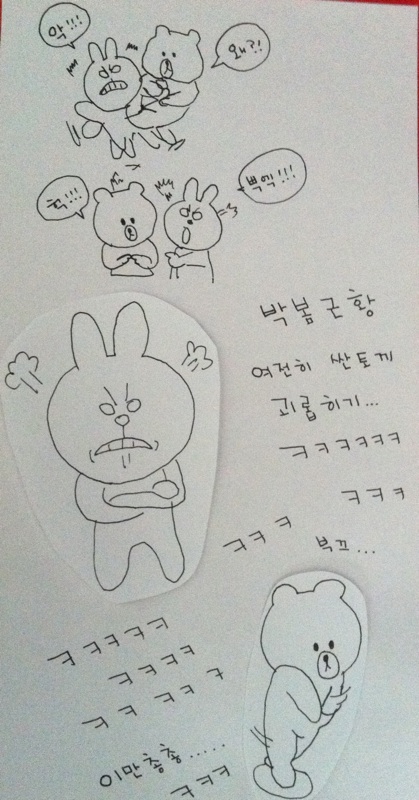 악!!!
왜?!
헉!!!
벽엑!!!
박봄근황
여전히 싼토끼
괴롭히기...
ㅋㅋㅋㅋㅋㅋ
ㅋㅋㅋ
ㅋㅋㅋ
부끄...
ㅋㅋㅋㅋㅋ
ㅋㅋㅋㅋ
ㅋㅋ ㅋㅋ ㅋ
이만총총.....
ㅋㅋㅋ